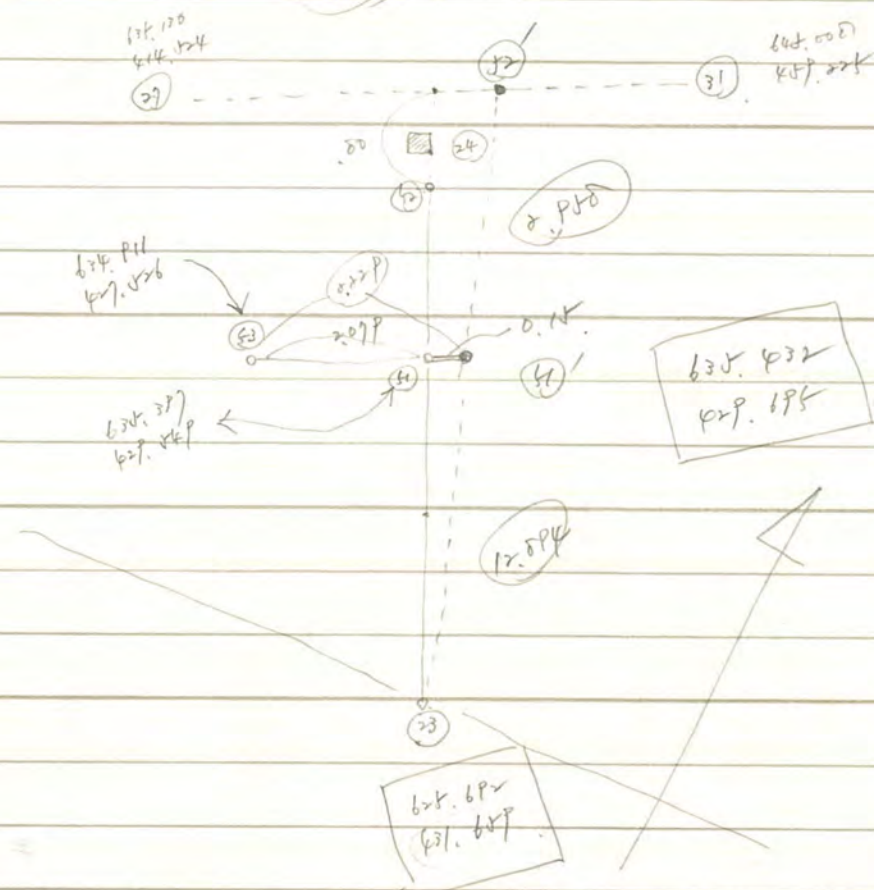 635.130
414.524
52'
645.003
459.225
27
31
.80
24
52
2.958
634.911
427.526
2.229
53
2.079
0.15
51
51'
635.432
429.695
635.397
429.549
12.894
23
625.692
431.659